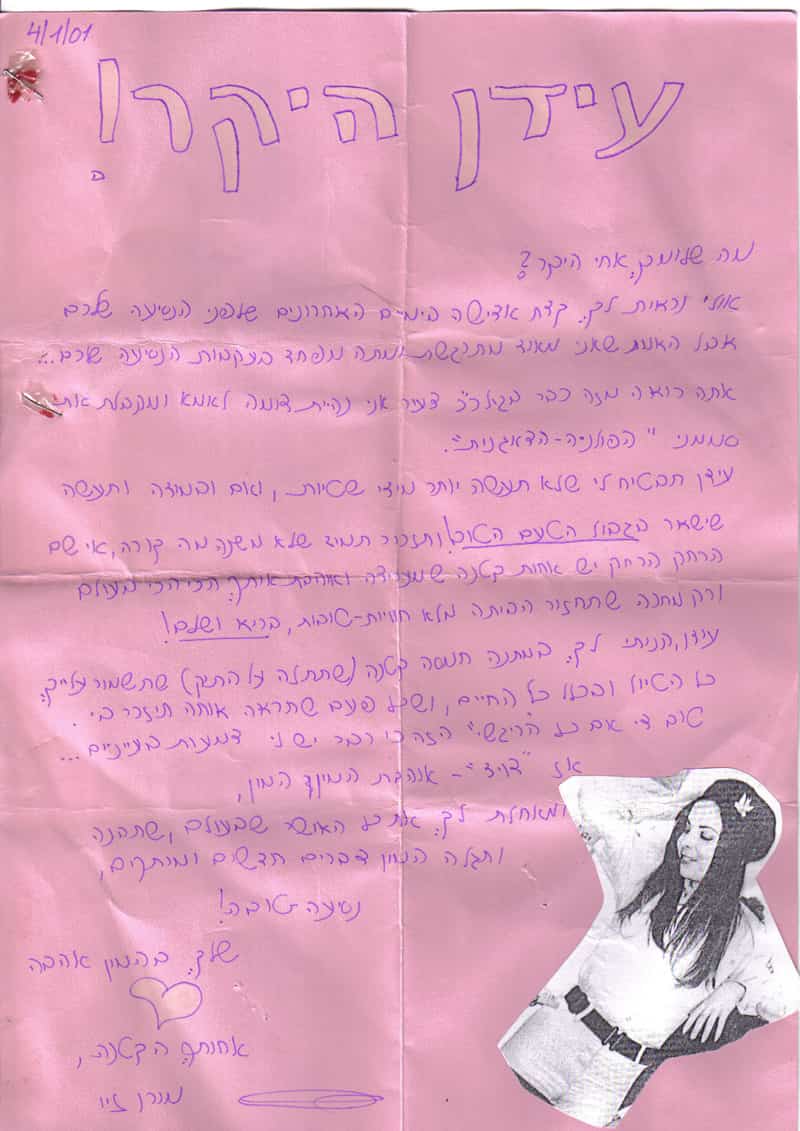 4/1/01
עידן היקר!
מה שלומך, אחי היקר?
אולי נראית לך קצת אדישה בימים האחרונים שלפני הנסיעה שלכם
אבל האמת שאני מאוד מתרגשת ומתה מפחד בעקבות הנסיעה שלכם...
אתה רואה מזה כבר בגיל כ"כ צעיר אני נהיית דומה לאמא ומקבלת את
סממני "הפולניה-הדאגנית".
עידן תבטיח לי שלא תעשה יותר מידי שטויות, ואם ובמידה ותעשה
שישאר בגבול הטעם הטוב! ותזכור תמיד שלא משנה מה קורה, אי שם
הרחק הרחק יש אחות קטנה שמעריצה ואוהבת אותך הכי הכי בעולם
ורק מחכה שתחזור הביתה מלא חוויות-טובות, בריא ושלם!
עידן, הניתי לך במתנה חמסה קטנה (שתתלה על התיק) שתשמור עלייך
כל הטיול ובכלל כל החיים, ושכל פעם שתראה אותה תיזכר בי.
טוב די אם כל ה"ריגשי" הזה כי כבר יש לי דמעות בעיניים...
אז - אוהבת המון המון,
ומאחלת לך את כל האושר שבעולם, שתהנה
ותגלה המון דברים חדשים ומותקים,
נסיעה-טובה!
שלך בהמון אהבה
אחותך הקטנה,
מורן זיו